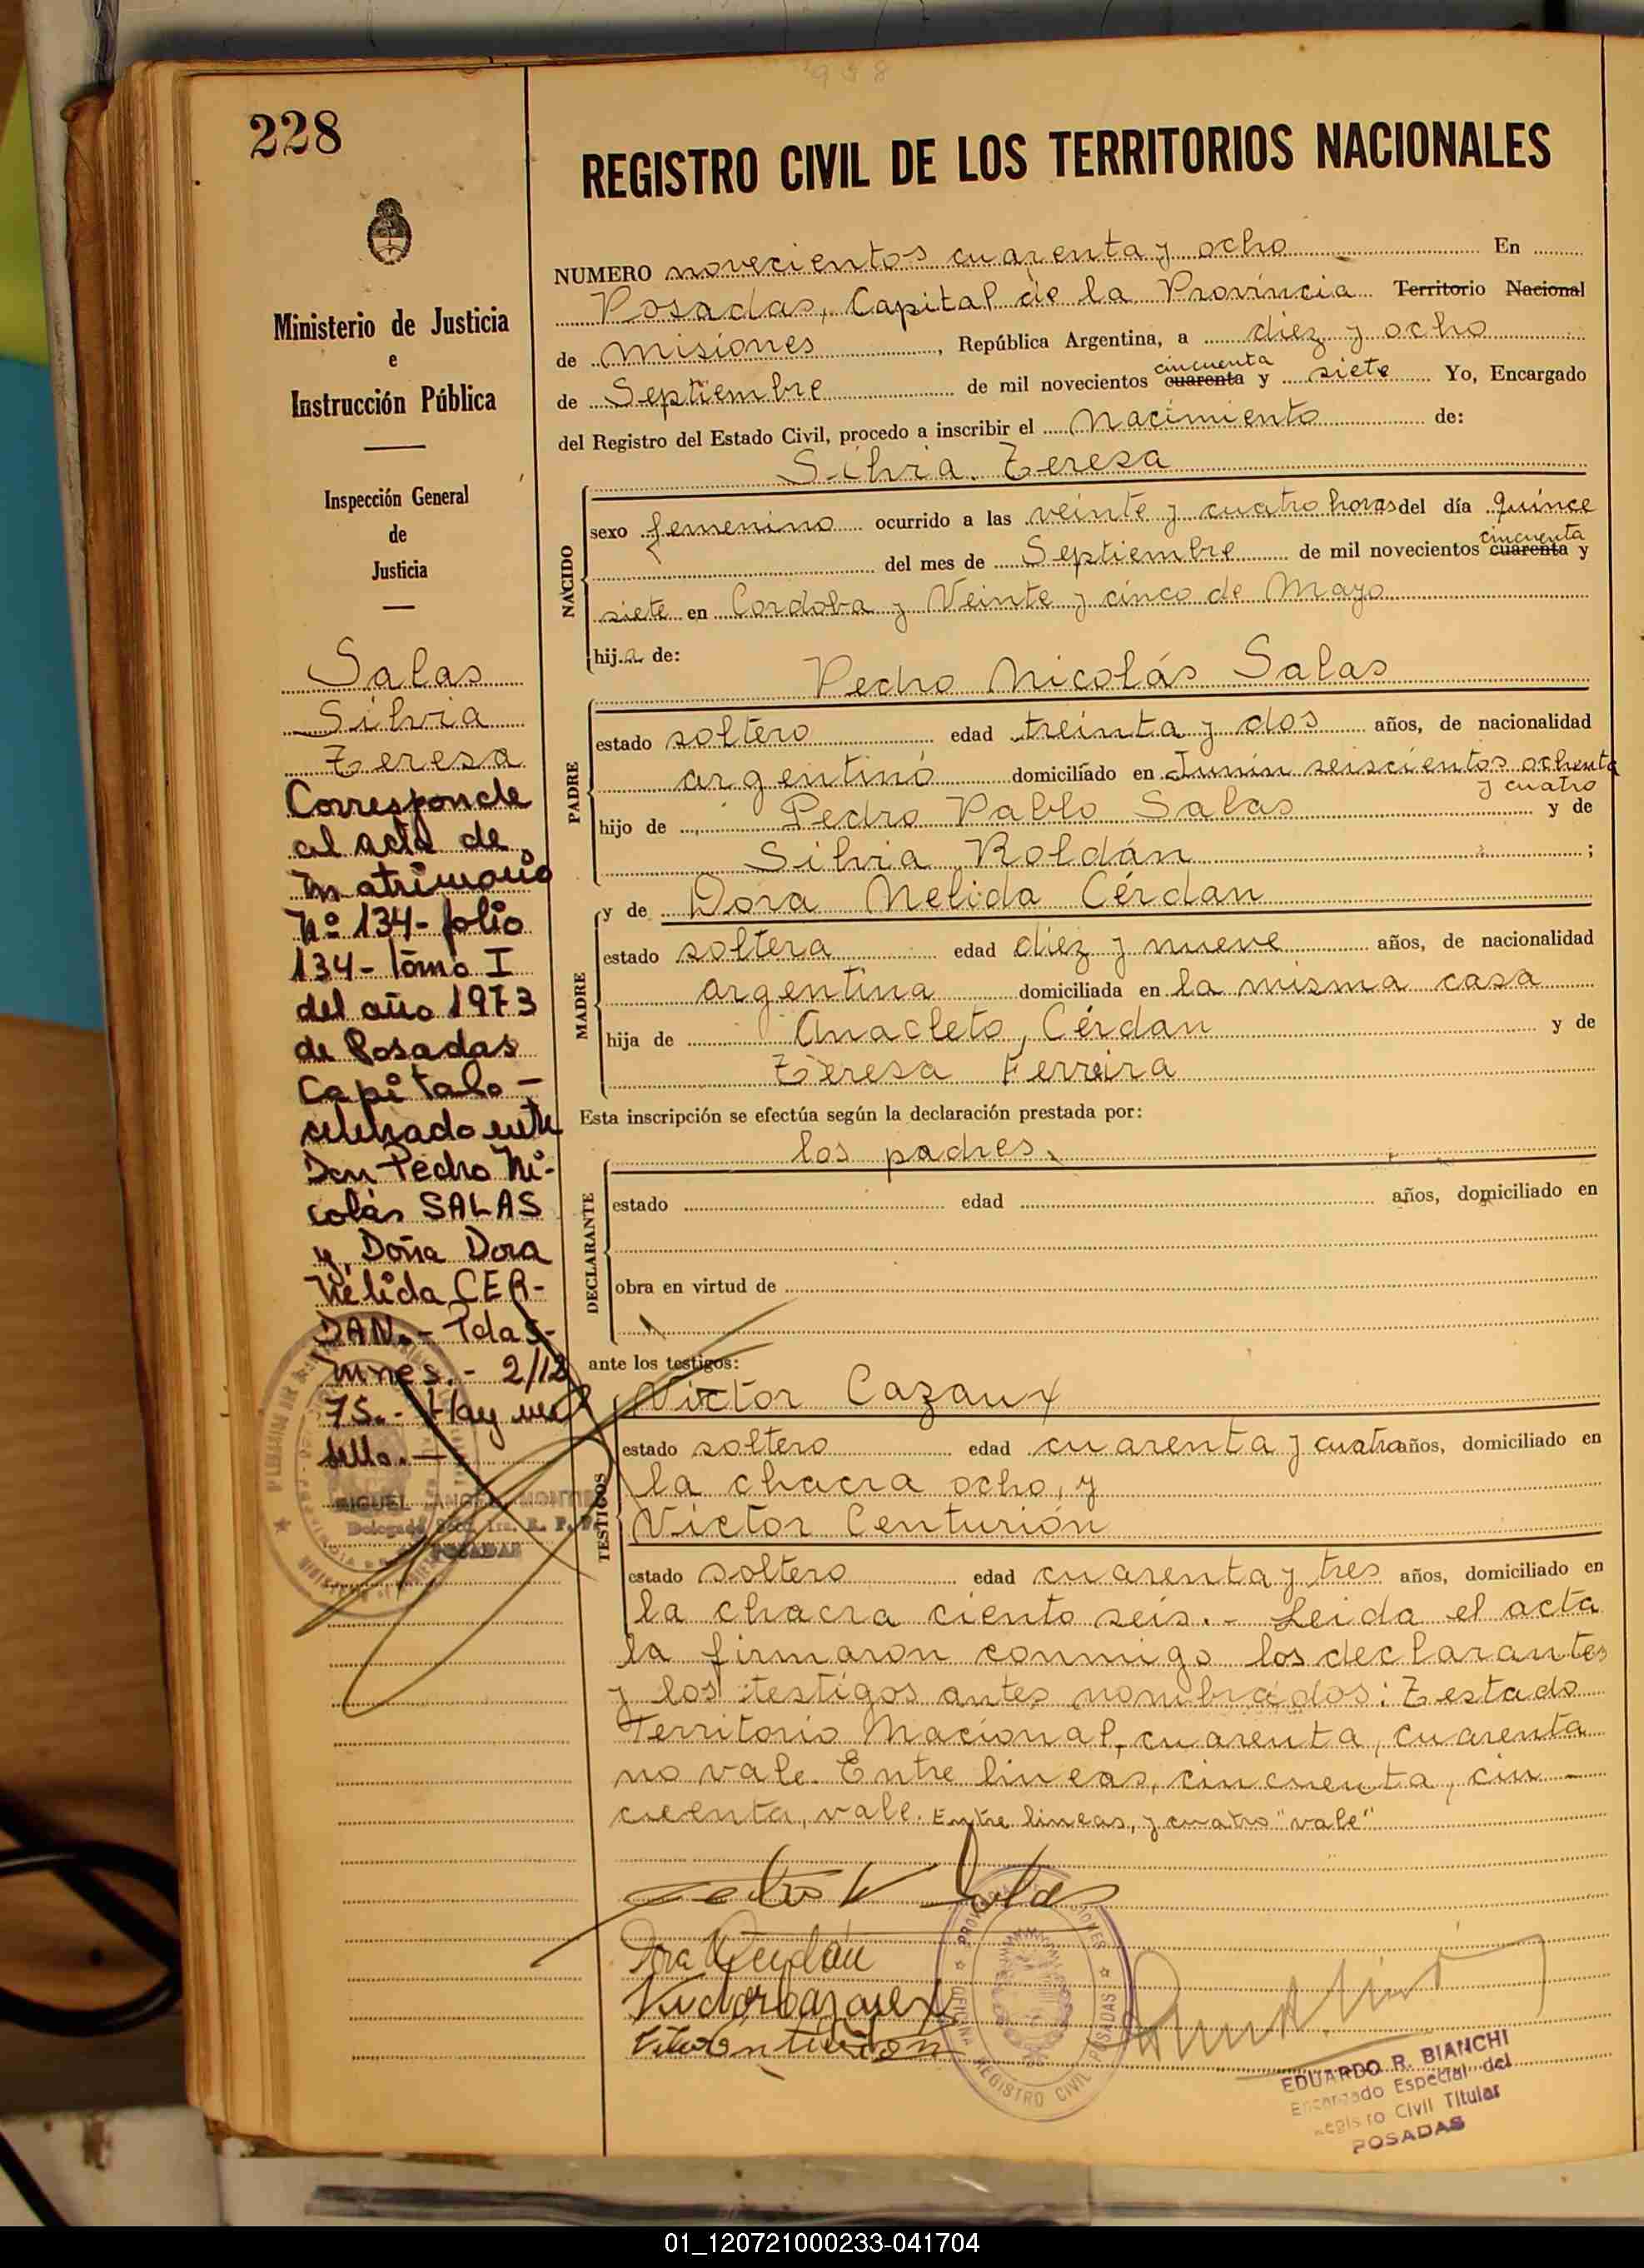 228
Ministerio de Justicia
e
Instrucción Pública
Inspección General
de
Justicia
Salas
Silvia
Teresa
Corresponde
al acta de
matrimonio
Nº 134- folio
134- Tomo I
del año 1973
de Posadas
Capital -
celebrado entre
Don Pedro Ni-
colás SALAS
y Doña Dora
Nélida CER-
DAN.- Pdas-
Mnes.- 2/12
75.- Hay un
sello.-
POSADAS
948
REGISTRO CIVIL DE LOS TERRITORIOS NACIONALES
NUMERO novecientos cuarenta y ocho En
Posadas, Capital de la Provincia Territorio Nacional
de Misiones, República Argentina, a diez y ocho
cincuenta
de Septiembre de mil novecientos cuarenta y siete Yo, Encargado
del Registro del Estado Civil, procedo a inscribir el Nacimiento de:
Silvia Teresa
NACIDO
sexo femenino ocurrido a las veinte y cuatro horas del día quince
cincuenta
del mes de Septiembre de mil novecientos cuarenta y
siete en Cordoba y Veinte y cinco de Mayo
hija de:
Pedro Nicolás Salas
PADRE
estado soltero edad treinta y dos años, de nacionalidad
argentino domiciliado en Junín seiscientos ochenta
y cuatro
hijo de Pedro Pablo Salas y de
Silvia Roldán ;
y de Dora Nelida Cérdan
MADRE
estado soltera edad diez y nueve años, de nacionalidad
argentina domiciliada en la misma casa
hija de Anacleto Cérdan y de
Teresa Ferreira
Esta inscripción se efectúa según la declaración prestada por:
los padres.
DECLARANTE
estado edad años, domiciliado en
obra en virtud de
ante los testigos:
Victor Cazaux
TESTIGOS
estado soltero edad cuarenta y cuatro años, domiciliado en
la chacra ocho, y
Victor Centurión
estado soltero edad cuarenta y tres años, domiciliado en
la chacra ciento seis.- Leida el acta
la firmaron conmigo los declarantes
y los testigos antes nombrados: Testado
Territorio Nacional, cuarenta, cuarenta
no vale. Entre lineas, cincuenta, cin-
cuenta, vale. Entre lineas, y cuatro "vale"
Dora N Cerdán
Victor Cazaux
Victor Centurión
OFICINA REGISTRO CIVIL POSADAS
EDUARDO R. BIANCHI
Encargado Especial del
Registro Civil Titular
POSADAS
01_120721000233-041704